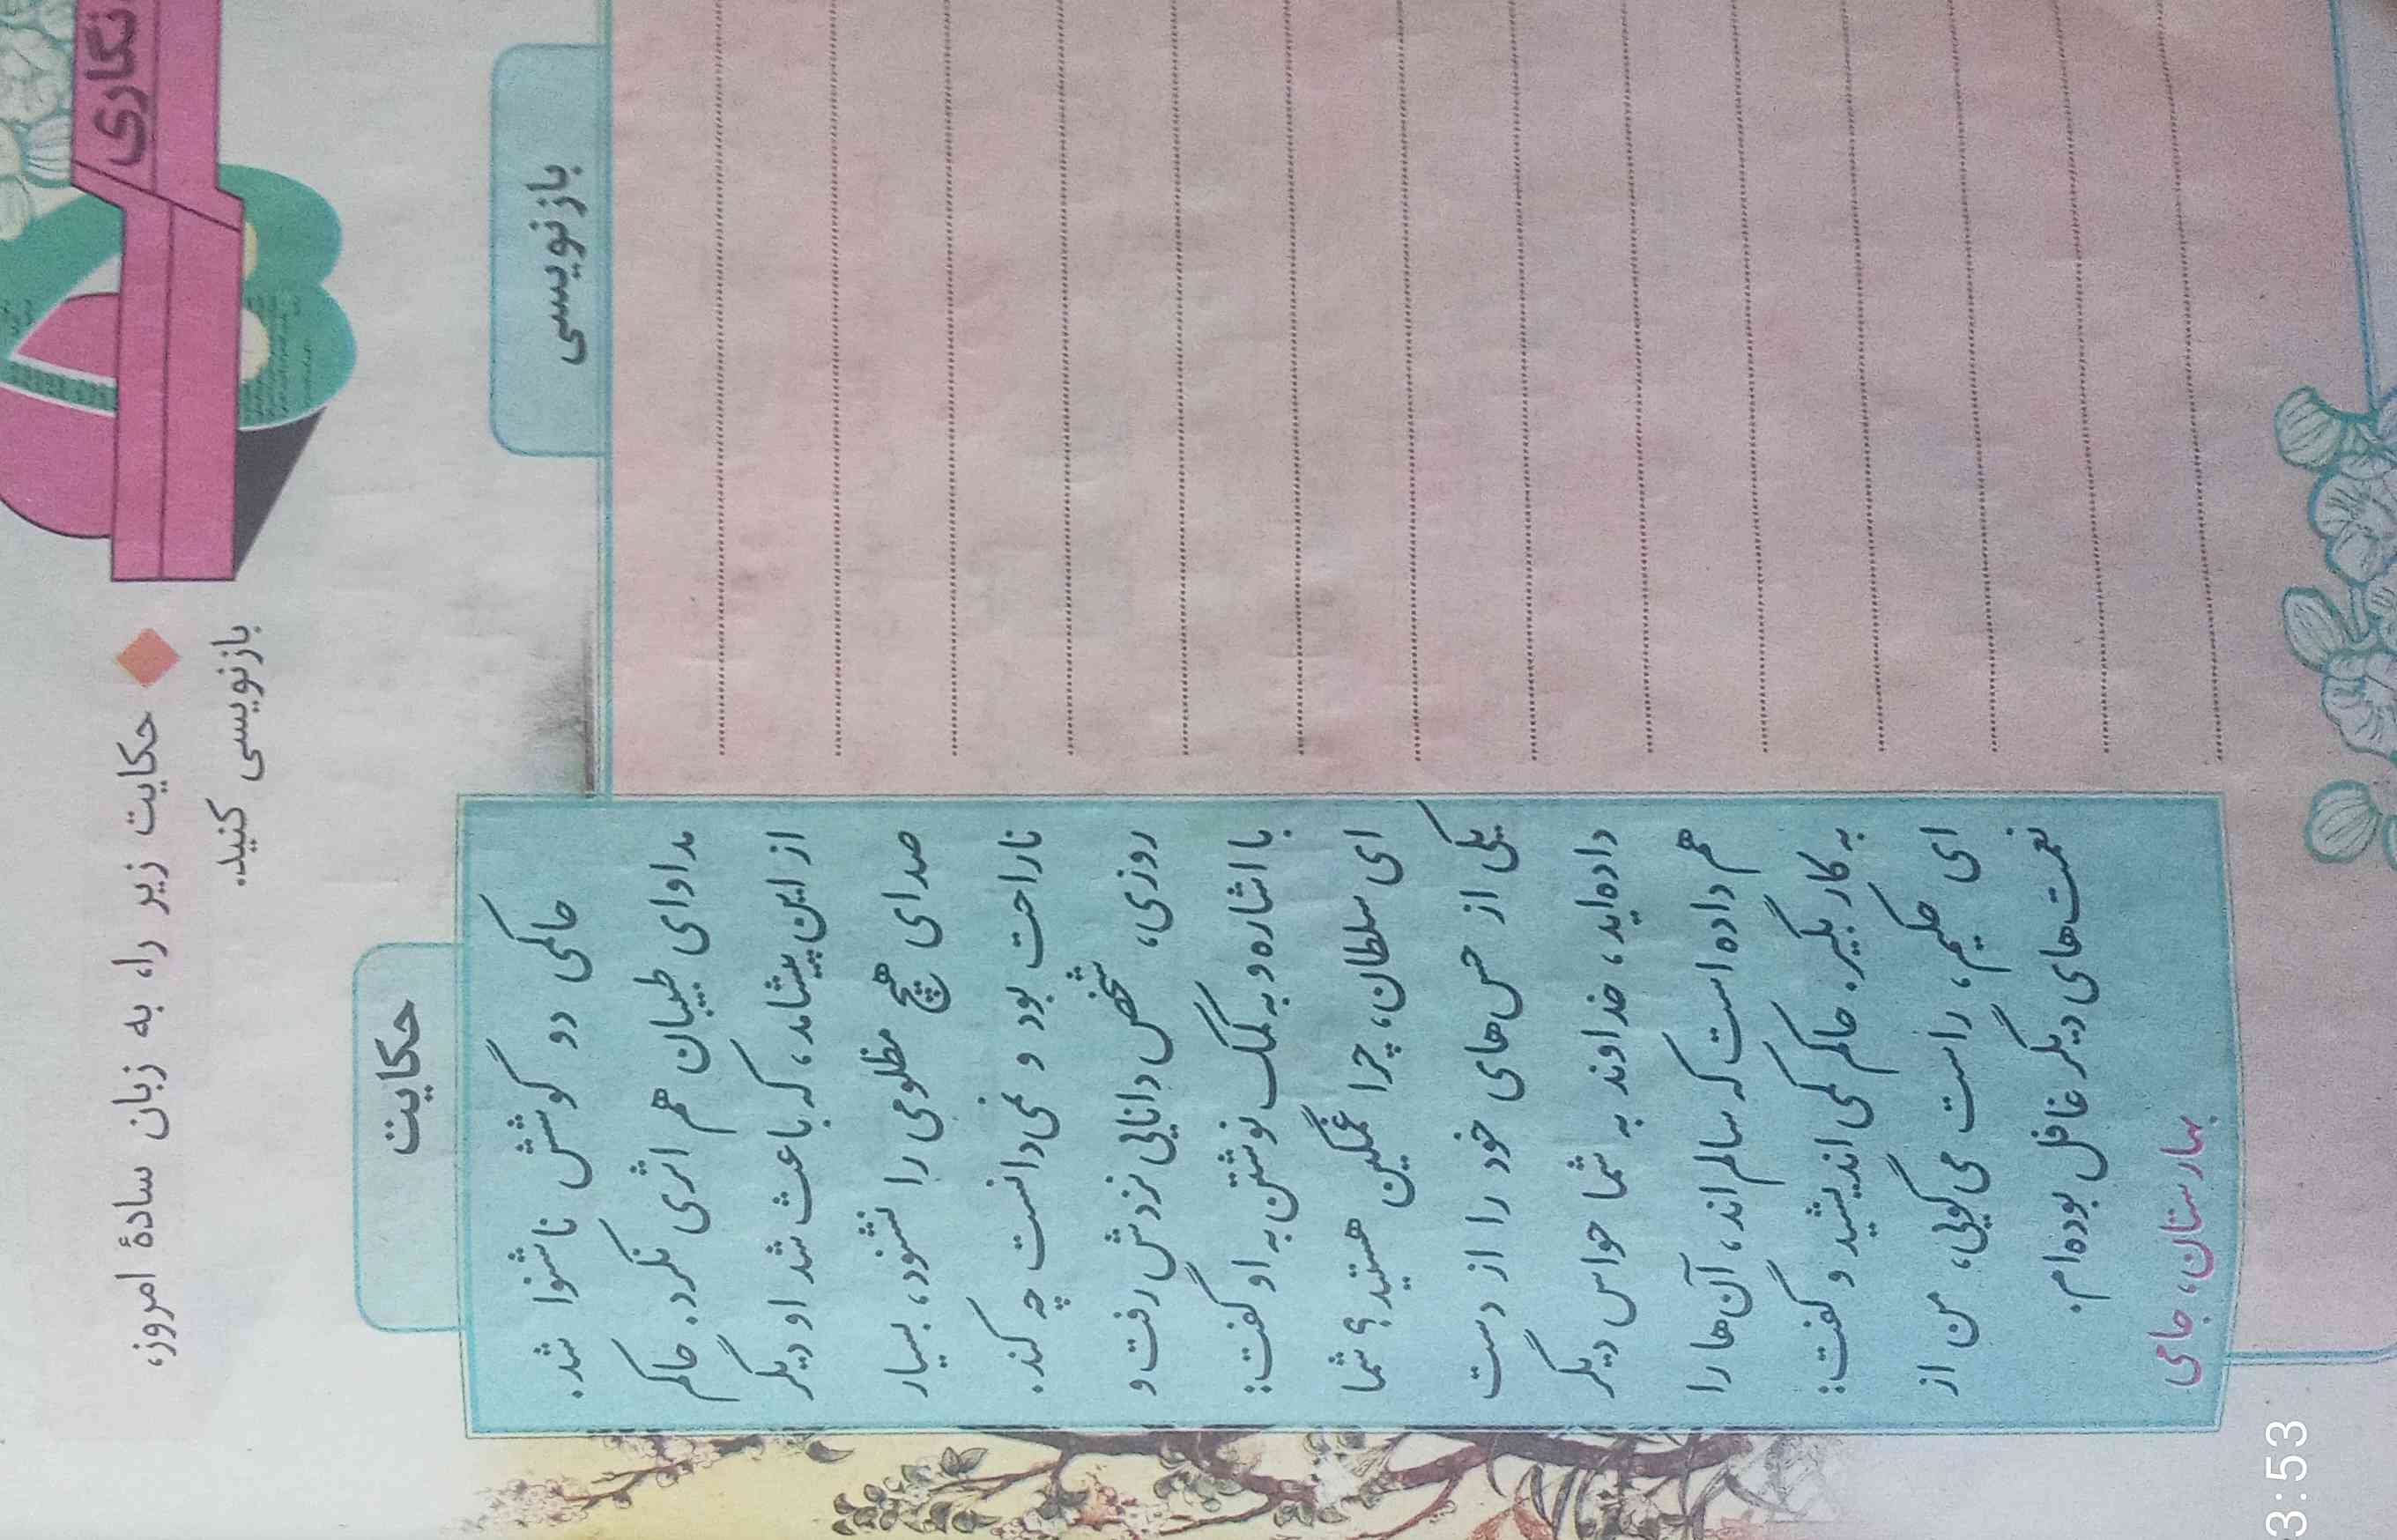 نگاری
حکایت زیر را، به زبان سادهٔ امروز،
بازنویسی کنید.
حکایت
حاکمی دو گوشش ناشنوا شد.
مداوای طبیبان هم اثری نکرد. حاکم
از این پیشامد، که باعث شد او دیگر
صدای هیچ مظلومی را نشنود، بسیار
ناراحت بود و نمی‌دانست چه کند.
روزی، شخص دانایی نزدش رفت و
با اشاره و به کمک نوشتن به او گفت:
ای سلطان، چرا غمگین هستید؟ شما
یکی از حس‌های خود را از دست
داده‌اید، خداوند به شما حواس دیگر
هم داده است که سالم‌اند، آن‌ها را
به کار بگیر. حاکم کمی اندیشید و گفت:
ای حکیم، راست می‌گویی، من از
نعمت‌های دیگر غافل بوده‌ام.
بهارستان، جامی
بازنویسی
3:53